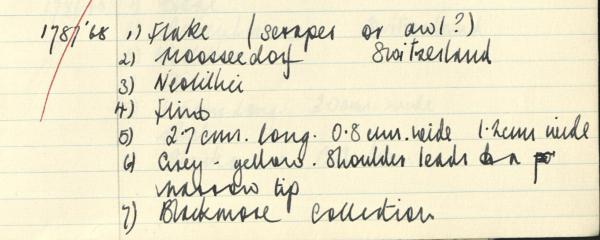 1787'68 1) Flake (scraper or awl?)
2) Moosseedorf Switzerland
3) Neolithic
4) Flint
5) 2.7 cm. long. 0.8 cm. wide 1.2cm wide
6) Grey-yellow. Shoulder leads to a
narrow tip
7) Blackmore Collection